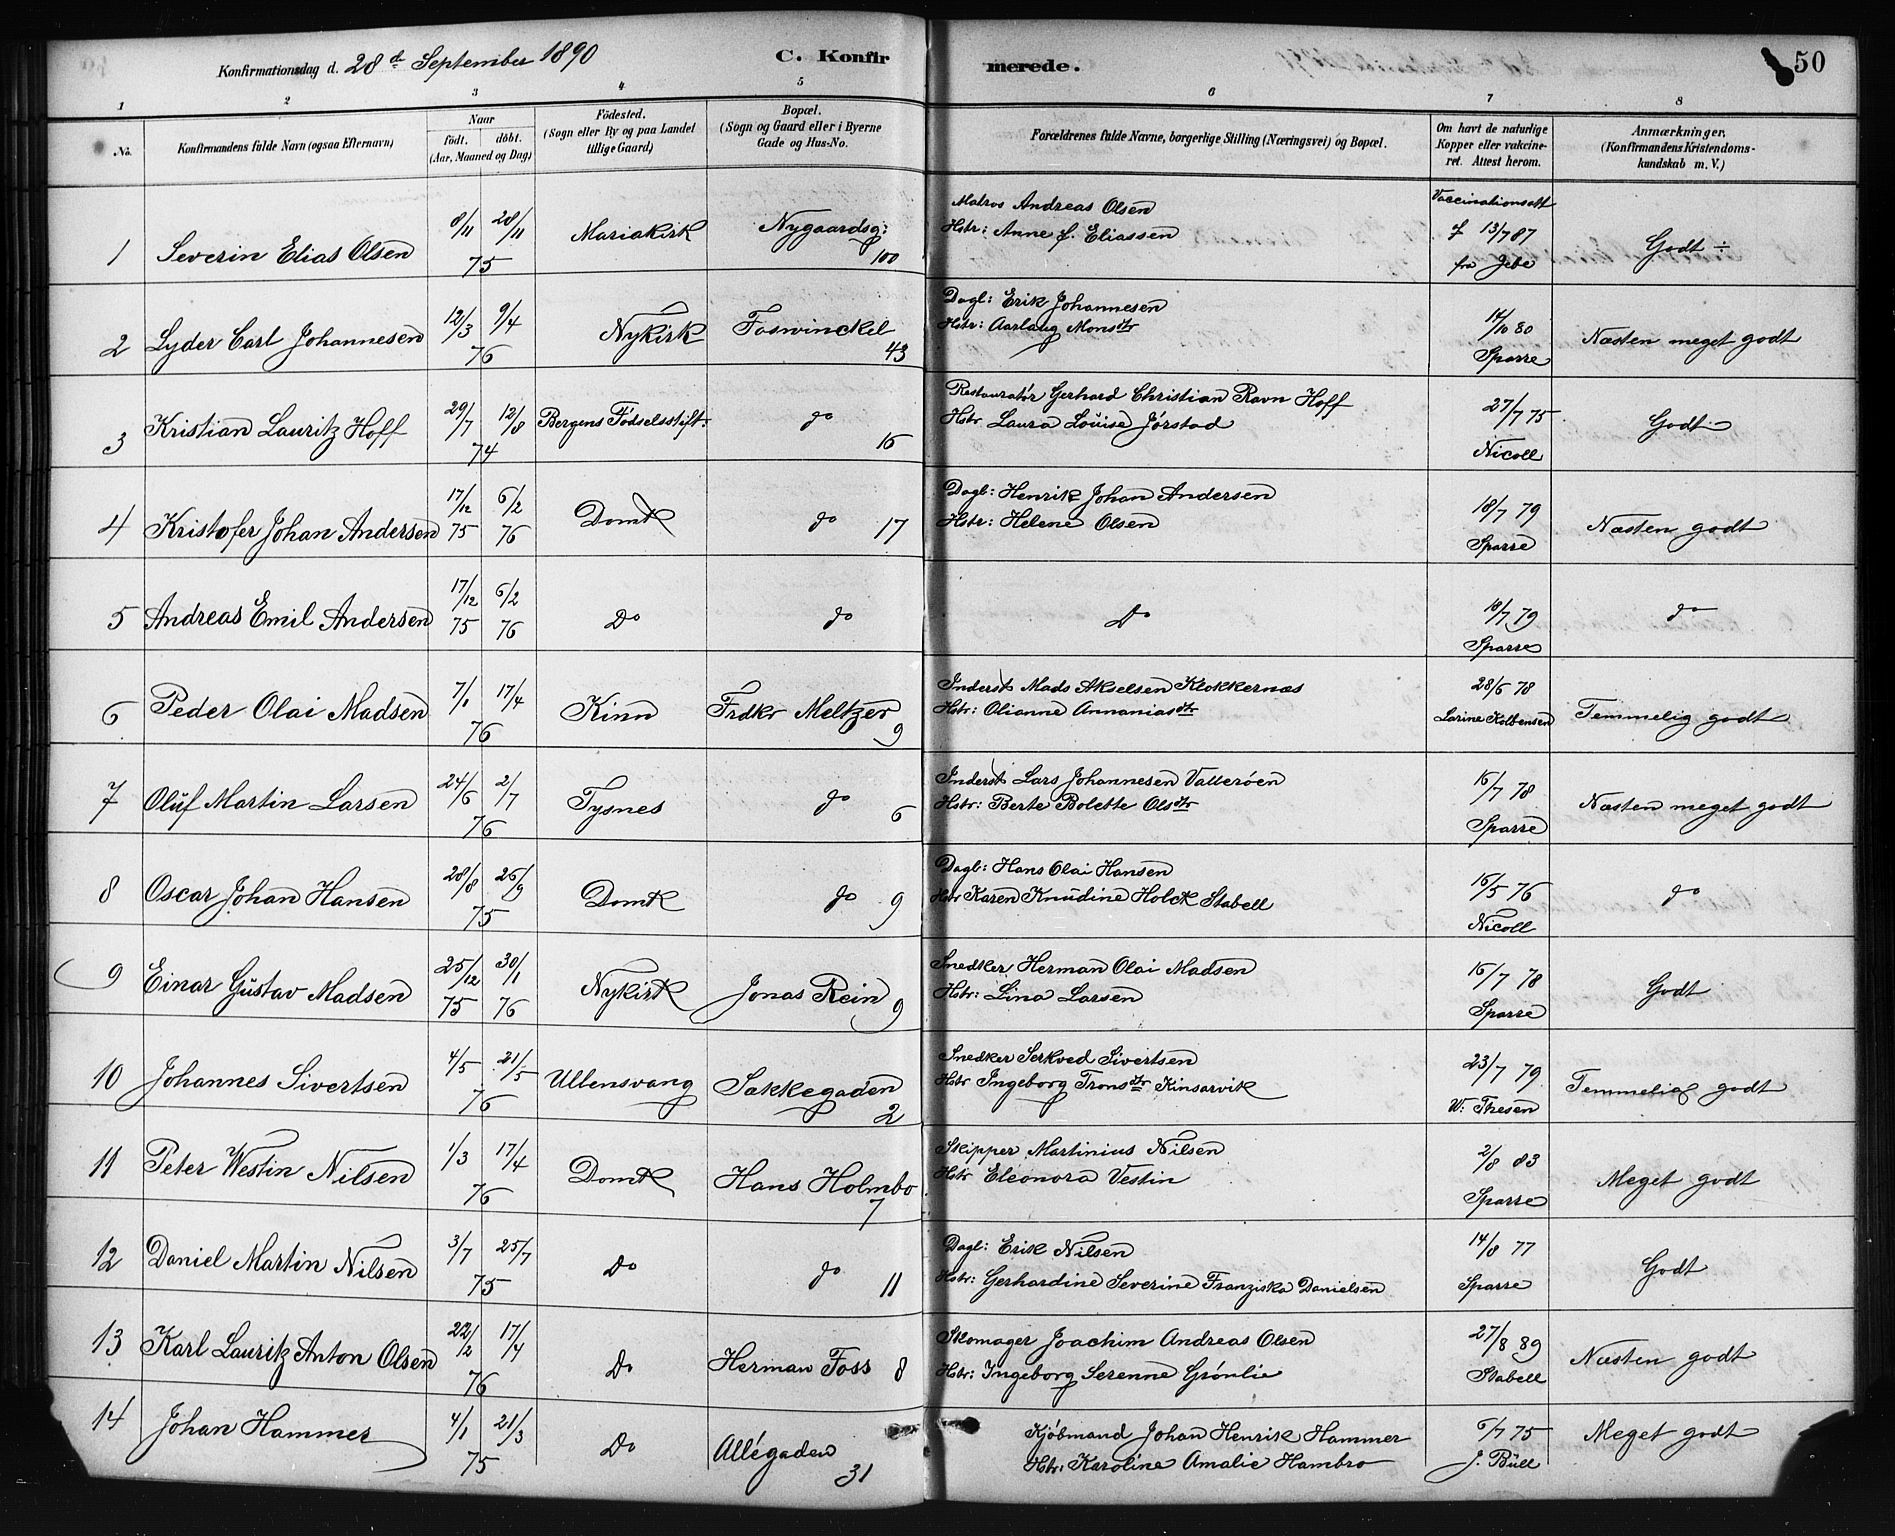 Konfirmationsdag d. 28d September 1890 C. Konfirmerede. 50
1 2 3 4 5 6 7 8
No. Konfirmandens fulde Navn (ogsaa Efternavn) Naar født. døbt. (Aar, Maaned og Dag) Fødested. (Sogn eller By og paa Landet tillige Gaard) Bopæl. (Sogn og Gaard eller i Byerne Gade og Hus-No. Forældrenes fulde Navne, borgerlige Stilling (Næringsvei) og Bopæl. Om havt de naturlige Kopper eller vakcineret. Attest herom. Anmærkninger. (Konfirmandens Kristendomskundskab m. V.)
1 Severin Elias Olsen 8/11 28/11 75 Mariakirk Nygaardsg: 100 Matros Andreas Olsen
Hstr: Anne f. Eliassen Vaccinationsatt f 13/7 87 fra Jebe Godt ÷
2 Lyder Carl Johannesen 12/3 9/4 76 Nykirk Foswinckel 43 Dagl: Erik Johannesen
Hstr: Aarlaug Monsdtr 14/10 80 Sparre Næsten meget godt
3 Kristian Lauritz Hoff 29/7 12/8 74 Bergens Fødselsstift: do 16 Restauratør Gerhard Christian Ravn Hoff
Hstr Laura Louise Jørstad 27/7 75 Nicoll Godt
4 Kristofer Johan Andersen 17/12 75 6/2 76 Domk do 17 Dagl: Henrik Johan Andersen
Hstr: Helene Olsen 18/7 79 Sparre Næsten godt
5 Andreas Emil Andersen 17/12 75 6/2 76 Do do Do 18/7 79 Sparre do
6 Peder Olai Madsen 7/1 17/4 76 Kinn Frdkr Meltzer 9 Inderst Mads Akselsen Klokkernæs
Hstr: Olianne Annaniasdtr 28/6 78 Larine Kolbensen Temmelig godt
7 Oluf Martin Larsen 24/6 2/7 76 Tysnes do 6 Inderst Lars Johannesen Vallerøen
Hstr: Berte Bolette Olsdtr 16/7 78 Sparre Næsten meget godt
8 Oscar Johan Hansen 28/8 26/9 75 Domk do 9 Dagl: Hans Olai Hansen
Hstr Karen Knudine Holck Stabell 16/5 76 Nicoll do
9 Einar Gustav Madsen 25/12 75 30/1 76 Nykirk Jonas Rein 9 Snedker Herman Olai Madsen
Hstr: Lina Larsen 16/7 78 Sparre Godt
10 Johannes Sivertsen 4/5 21/5 76 Ullensvang Sakkegaden 2 Snedker Serkved Sivertsen
Hstr Ingeborg Tronsdtr Kinsarvik 23/7 79 W: Thesen Temmelig godt
11 Peter Westin Nilsen 1/3 17/4 76 Domk Hans Holmbo 7 Skipper Martinius Nilsen
Hstr Eleonora Vestin 2/8 83 Sparre Meget godt
12 Daniel Martin Nilsen 3/7 25/7 75 Do do 11 Dagl: Erik Nilsen
Hstr: Gerhardine Severine Franziska Danielsen 14/8 77 Sparre Godt
13 Karl Lauritz Anton Olsen 22/2 17/4 76 Do Herman Foss 8 Skomager Joachim Andreas Olsen
Hstr: Ingeborg Serenne Grønlie 27/8 89 Stabell Næsten godt
14 Johan Hammer 4/1 21/3 75 Do Allégaden 31 Kjøbmand Johan Henrik Hammer
Hstr: Karoline Amalie Hambro 6/7 75 J. Büll Meget godt